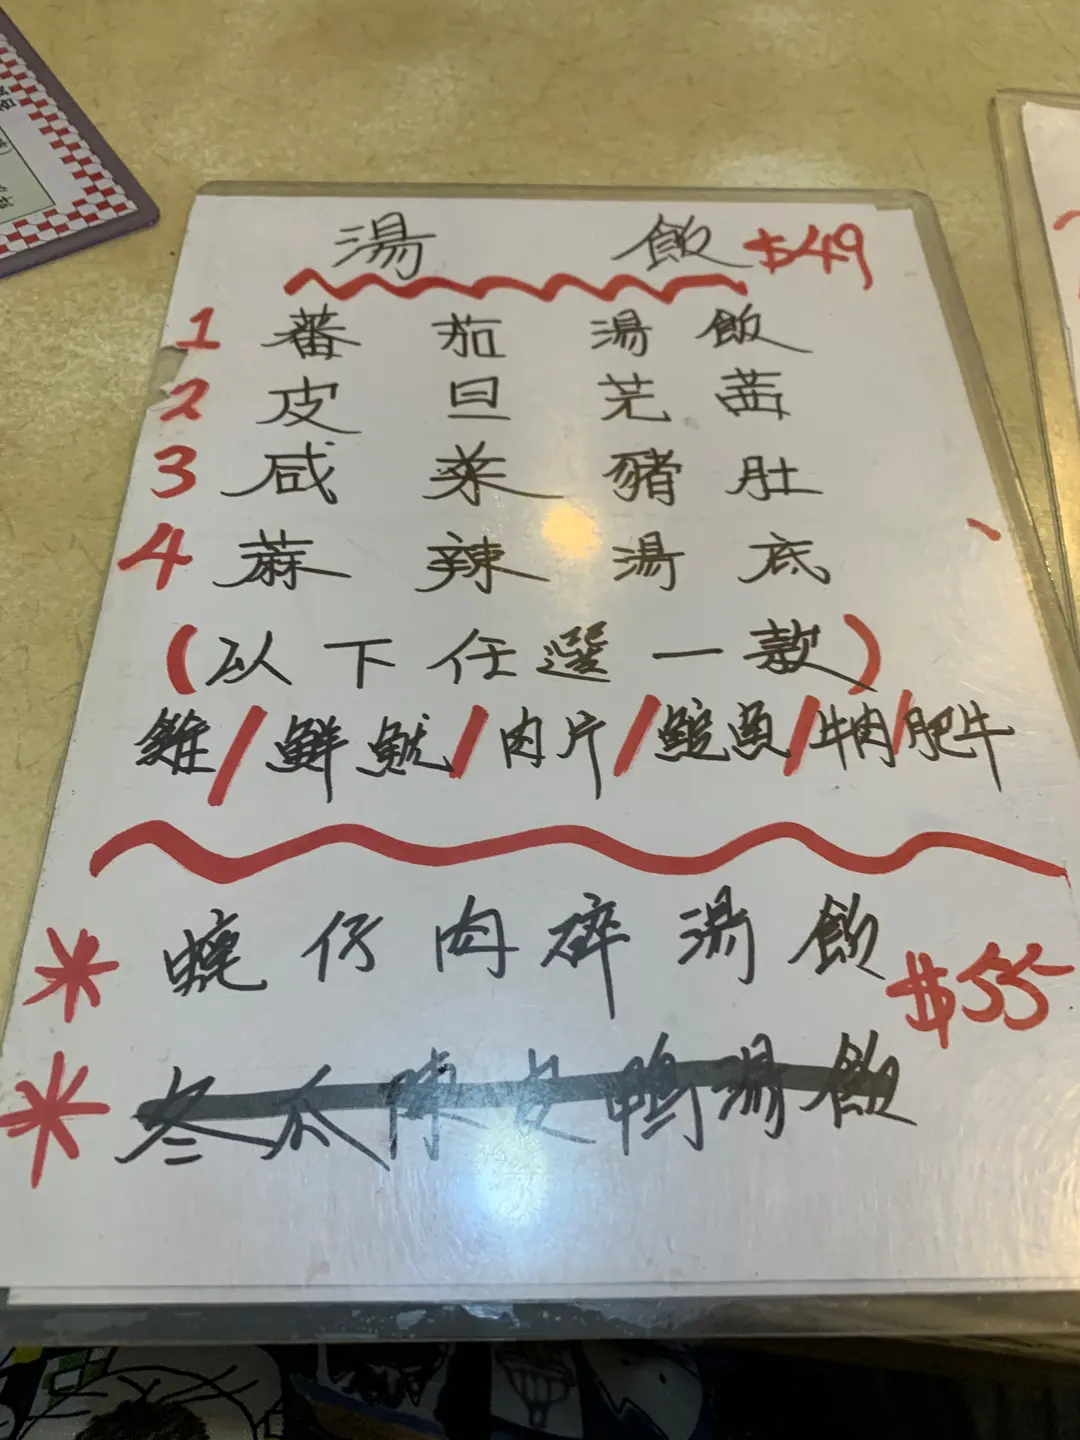 湯 飯 $49
1 蕃茄湯飯
2 皮旦芫茜
3 咸菜豬肚
4 蔴辣湯底
(以下任選一款)
雞/鮮魷/肉片/鯇魚/牛肉/肥牛
* 蠔仔肉碎湯飯 $55
* 冬瓜陳皮鴨湯飯